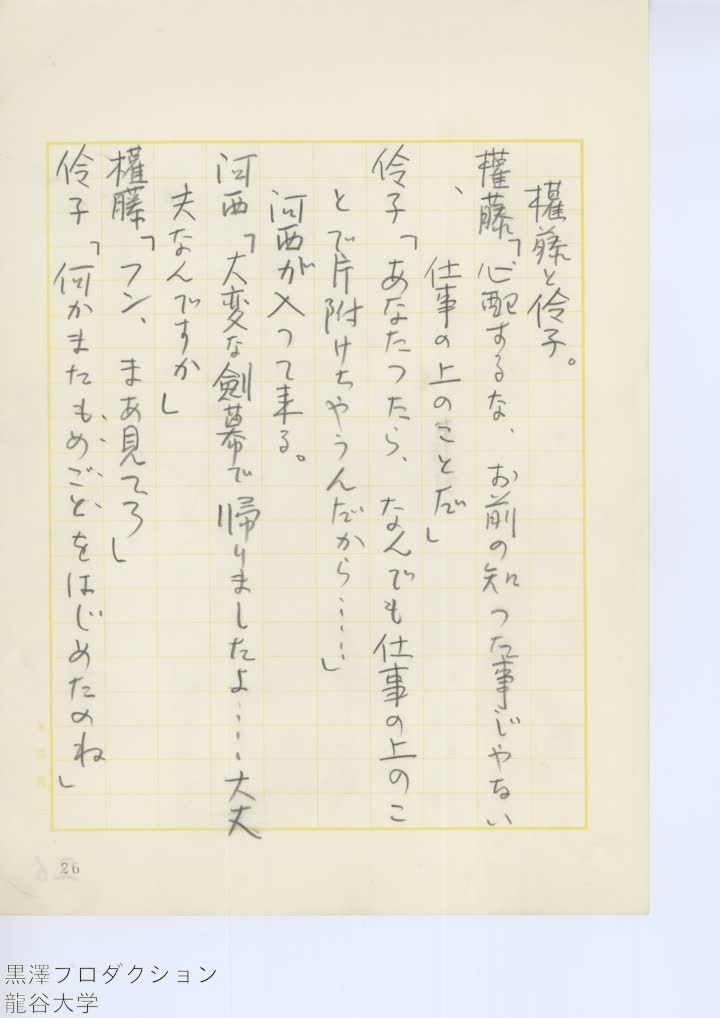 權藤と伶子。
權藤「心配するな、お前の知つた事じやない
、仕事の上のことだ」
伶子「あなたつたら、なんでも仕事の上のこ
とで片附けちやうんだから……」
河西が入つて来る。
河西「大変な劍幕で帰りましたよ……大丈
夫なんですか」
權藤「フン、まあ見てろ」
伶子「何かまたもめごとをはじめたのね」
26
黒澤プロダクション
龍谷大学